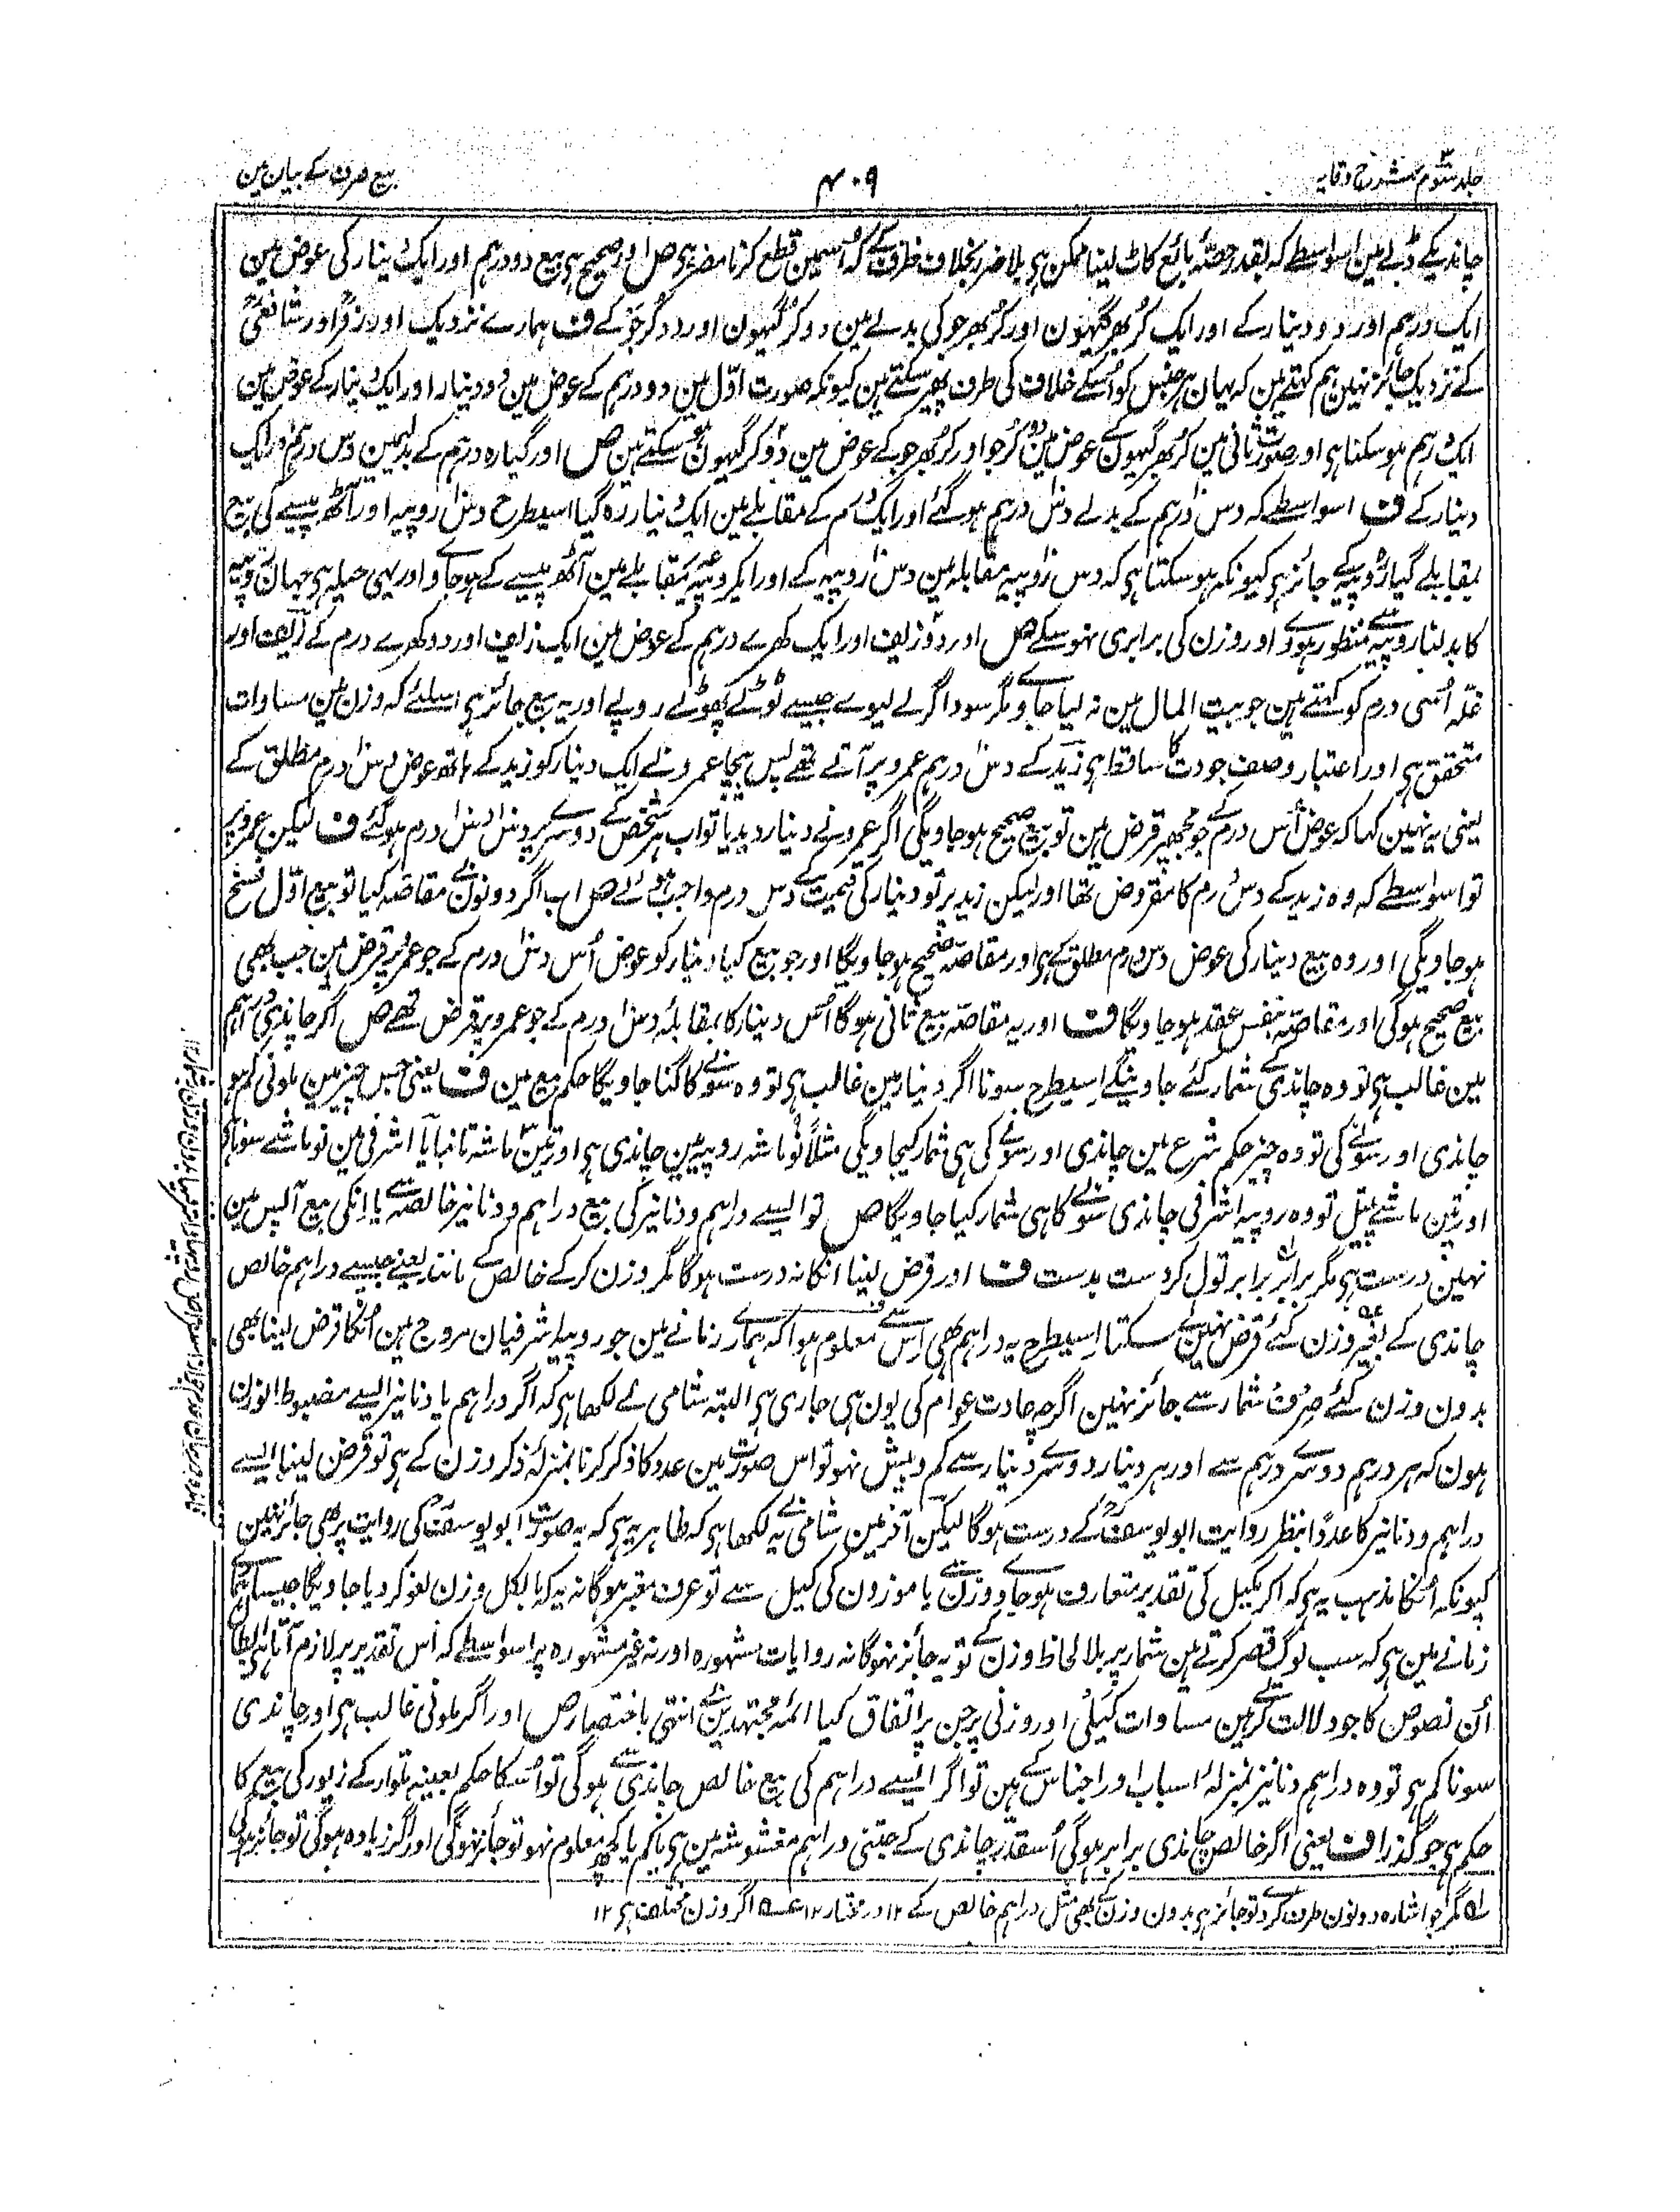 جلد سوم شرح وقایہ
۴۰۹
بیع صرف کے بیان مین
چاندیکے ڈلے مین اسواسطے کہ بقدر حصہ بائع کاٹ لینا ممکن ہی بلا ضرر بخلاف ظرف کے کہ اُسمین قطع کرنا مضر ہی ص اور صحیح ہی بیع دو درہم اور ایک دینار کی عوض مین
ایک درہم اور دو دینار کے اور ایک کُر بھر گیہون اور کُر بھر جو کی بدلے مین دو کُر گیہون اور دو کُر جَو کے ف ہمارے نزدیک اور زفرؒ اور شافعیؒ
کے نزدیک جائز نہین ہم کہتے ہین کہ یہان ہر جنس کو اُسکے خلاف کی طرف پھیر سکتے ہین کیونکہ صورت اوّل مین دو درہم کے عوض مین دو دینار اور ایک دینار کے عوض مین
ایک درہم ہو سکتا ہی اور صورت ثانی مین کُر بھر گیہون کے عوض مین دو کُر جو اور کُر بھر جو کے عوض مین دو کُر گیہون ہو سکتے ہین ص اور گیارہ درہم کے بدلیمین دس درہم اور ایک
دینار کے ف اسواسطے کہ دس درہم کے بدلے دس درہم ہو گئے اور ایک درہم کے مقابلے مین ایک دینار رہ گیا اسیطرح دس روپیہ اور آٹھ پیسے کی بیع
بمقابلے گیارہ روپیہ کے جائز ہی کیونکہ ہو سکتا ہی کہ دس روپیہ مقابلہ مین دس روپیہ کے اور ایک روپیہ مقابلے مین آٹھ پیسے کے ہو جاوے اور یہی حیلہ ہی جہان روپیہ
کا بدلنا روپیہ سے منظور ہووے اور وزن کی برابری نہو سکے ص اور دو زلف اور ایک کھرے درہم کے عوض مین ایک زلف اور دو کھرے درم کے ف اور
غلّہ اُسی درم کو کہتے ہین جو بیت المال مین نہ لیا جاوے مگر سوداگر لے لیوے جیسے ٹوٹے پھوٹے روپے اور یہ بیع جائز ہی اسلئے کہ وزن مین مساوات
متحقق ہی اور اعتبار وصف جودت کا ساقط ہی زید کے دس درہم عمرو پر آتے تھے پس بیچا عمرو نے ایک دینار کو زید کے ہاتھ عوض دس درم مطلق کے
یعنی یہ نہین کہا کہ عوض اُس درم کے جو مجھپر قرض ہین تو بیع صحیح ہو جاویگی اگر عمرو نے دینار دیدیا تو اب ہر شخص کے دوسرے پر دس دس درم ہو گئے ف لیکن عمرو پر
تو اسواسطے کہ وہ زید کے دس درم کا مقروض تھا اور لیکن زید پر تو دینار کی قیمت کے دس درم واجب ہوئے ص اب اگر دونون نے مقاصہ کیا تو بیع اوّل فسخ
ہو جاویگی اور وہ بیع دینار کی عوض دس درم مطلق کے ہی اور مقاصہ صحیح ہو جاویگا اور جو بیع کیا دینار کو عوض اُس دس درم کے جو عمرو پر قرض ہین جب بھی
بیع صحیح ہوگی اور مقاصہ بنفس عقد ہو جاویگا ف اور یہ مقاصہ بیع ثانی ہوگا اُس دینار کا بمقابلہ دس درم کے جو عمرو پر قرض تھے ص اگر چاندی دراہم
مین غالب ہی تو وہ چاندی کے شمار کئے جاوینگے اسیطرح سونا اگر دینار مین غالب ہی تو وہ سونے کا گنا جاویگا حکم بیع مین ف یعنی جس چیز مین ملونی کم ہو
چاندی اور سونے کی تو وہ چیز حکم شرع مین چاندی اور سونے کی ہی شمار کیجاویگی مثلاً نو ماشہ روپیہ مین چاندی ہی اور تین ماشہ تانبا یا اشرفی مین نو ماشے سونا ہی
اور تین ماشے پیتل تو وہ روپیہ اشرفی چاندی سونے کا ہی شمار کیا جاویگا ص تو ایسے دراہم و دنانیر کی بیع دراہم و دنانیر خالصہ سے یا انکی بیع آپس مین
نہین درست ہی مگر برابر برابر تول کر دست بدست ف اور قرض لینا انکا نہ درست ہوگا مگر وزن کرکے خالص کے مانند یعنے جیسے دراہم خالص
چاندی کے بغیر وزن کئے قرض نہین لے سکتا اسیطرح یہ دراہم بھی اس سے معلوم ہوا کہ ہمارے زمانے مین جو روپیہ اشرفیان مروج ہین اُنکا قرض لینا بھی
بدون وزن کئے صرف شمار سے جائز نہین اگرچہ عادت عوام کی یون ہی جاری ہی البتہ شامی نے لکھا ہی کہ اگر دراہم یا دنانیر ایسے مضبوط الوزن
ہون کہ ہر درہم دوسرے درہم سے اور ہر دینار دوسرے دینار سے کم و بیش نہو تو اس صورت مین عدد کا ذکر کرنا بمنزلہ ذکر وزن کے ہی تو قرض لینا ایسے
دراہم و دنانیر کا عدداً بنظر روایت ابو یوسفؒ کے درست ہوگا لیکن آخر مین شامی نے یہ لکھا ہی کہ ظاہر یہ ہی کہ یہ صورت ابو یوسفؒ کی روایت پر بھی جائز نہین
کیونکہ اُنکا مذہب یہ ہی کہ اگر مکیل کی تقدیر متعارف ہو جاوے وزن سے یا موزون کی کیل سے تو عرف معتبر ہوگا نہ یہ کہ بالکل وزن لغو کر دیا جاویگا جیسا کہ ہمارے
زمانے مین ہی کہ سب لوگ قصر کرتے ہین شمار پر بلا لحاظ وزن کے تو یہ جائز نہوگا نہ روایات مشہورہ اور نہ غیر مشہورہ پر اسواسطے کہ اس تقدیر پر لازم آتا ہی ابطال
اُن نصوص کا جو دلالت کرتے ہین مساوات کیلی اور وزنی پر جن پر اتفاق کیا ائمہ مجتہدین نے انتہی باختصار ص اور اگر ملونی غالب ہی اور چاندی
سونا کم ہی تو وہ دراہم دنانیر بمنزلہ اسباب اور اجناس کے ہین تو اگر ایسے دراہم کی بیع خالص چاندی سے ہوگی تو اُسکا حکم بعینہ تلوار کے زیور کی بیع کا
حکم ہی جو گذرا ف یعنی اگر خالص چاندی برابر ہوگی اُسقدر چاندی کے جتنی دراہم مغشوشہ مین ہی یا کم یا کچھ معلوم نہو تو جائز نہوگی اور اگر زیادہ ہوگی تو جائز ہوگی
مگر جو اشارہ دونون طرف کر دے تو جائز ہی بدون وزن کے بھی مثل دراہم خالص کے ۱۲ در مختار ۱۲ عہ اگر وزن مختلف ہی ۱۲